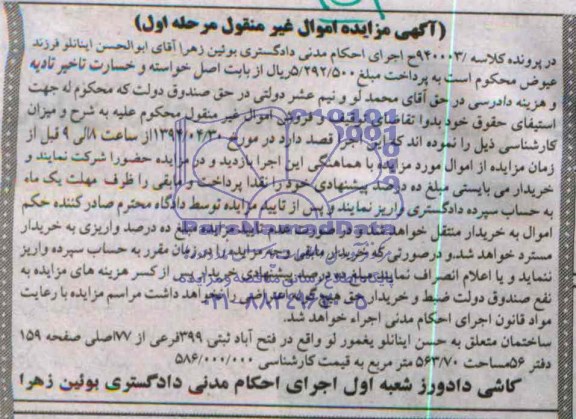 (آگهی مزایده اموال غیر منقول مرحله اول)
در پرونده کلاسه /۹۴۰۰۰۳ح اجرای احکام مدنی دادگستری بوئین زهرا آقای ابوالحسن اینانلو فرزند
عیوض محکوم است به پرداخت مبلغ ۵/۲۹۲/۵۰۰ریال از بابت اصل خواسته و خسارت تاخیر تادیه
و هزینه دادرسی در حق آقای محمد لو و نیم عشر دولتی در حق صندوق دولت که محکوم له جهت
استیفای حقوق خود بدوا تقاضای فروش اموال غیر منقول محکوم علیه به شرح و میزان
کارشناسی ذیل را نموده اند که این اجرا قصد دارد در مورخ ۱۳۹۴/۰۴/۳۰از ساعت ۸الی ۹ قبل از
زمان مزایده از اموال مورد مزایده با هماهنگی این اجرا بازدید و در مزایده حضورا شرکت نمایند و
خریدار می بایستی مبلغ ده درصد پیشنهادی خود را نقدا پرداخت و مابقی را ظرف مهلت یک ماه
به حساب سپرده دادگستری واریز نمایند و پس از تایید مزایده توسط دادگاه محترم صادر کننده حکم
اموال به خریدار منتقل خواهد مزایده مبلغ ده درصد واریزی به خریدار
مسترد خواهد شد. و درصورتی که خریدار مابقی وجه مزایده را در زمان مقرر به حساب سپرده واریز
ننماید و یا اعلام انصراف نماید مبلغ ده درصد پیشنهادی خریدار پس از کسر هزینه های مزایده به
نفع صندوق دولت ضبط و خریدار حق هیچ گونه اعتراضی را نخواهد داشت مراسم مزایده با رعایت
مواد قانون اجرای احکام مدنی اجراء خواهد شد.
ساختمان متعلق به حسن اینانلو یغمور لو واقع در فتح آباد ثبتی ۳۹۹فرعی از ۷۷اصلی صفحه ۱۵۹
دفتر ۵۶مساحت ۵۶۳/۷۰ متر مربع به قیمت کارشناسی ۵۸۶/۰۰۰/۰۰۰
کاشی دادورز شعبه اول اجرای احکام مدنی دادگستری بوئین زهرا
ParsNamadData
۰۲۱-۸۸۳۴۹۶۷۰-۵